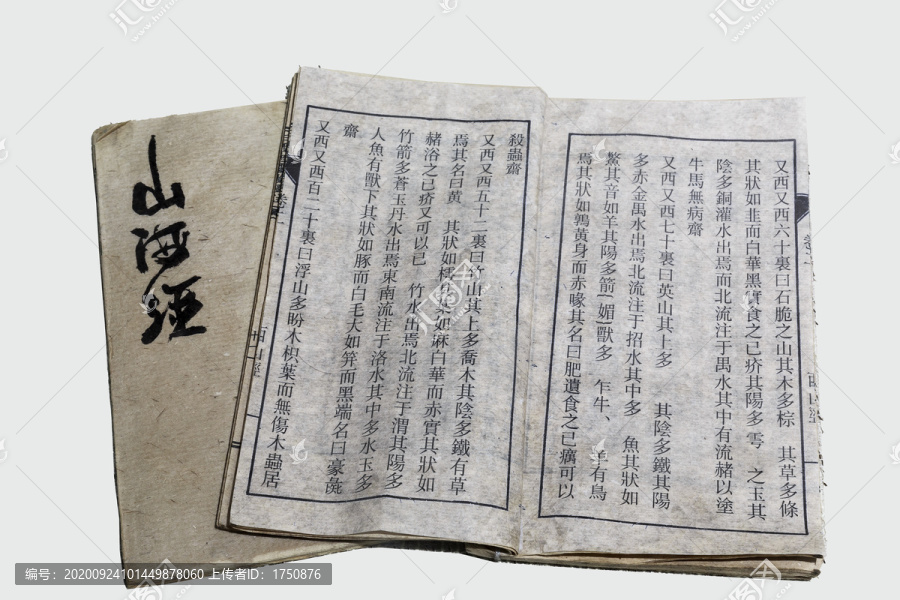 山海經
又西又西六十裏曰石脆之山其木多棕　其草多條
其狀如韭而白華黑實食之已疥其陽多　雩　之玉其
陰多銅灌水出焉而北流注于禺水其中有流赭以塗
牛馬無病齋
又西又西七十裏曰英山其上多　　其陰多鐵其陽
多赤金禺水出焉北流注于招水其中多　魚其狀如
鱉其音如羊其陽多箭(媚)獸多　乍牛、　羊有鳥
焉其狀如鶉黃身而赤喙其名曰肥遺食之已癘可以
殺蟲齋
又西又西五十二裏曰竹山其上多喬木其陰多鐵有草
焉其名曰黄　其狀如樗其葉如麻白華而赤實其狀如
赭浴之已疥又可以已　竹水出焉北流注于渭其陽多
竹箭多蒼玉丹水出焉東南流注于洛水其中多水玉多
人魚有獸下其狀如豚而白毛大如笄而黑端名曰豪彘
齋
又西又西百二十裏曰浮山多盼木枳葉而無傷木蟲居
西山經
编号：20200924101449878060 上传者ID：1750876
汇图网